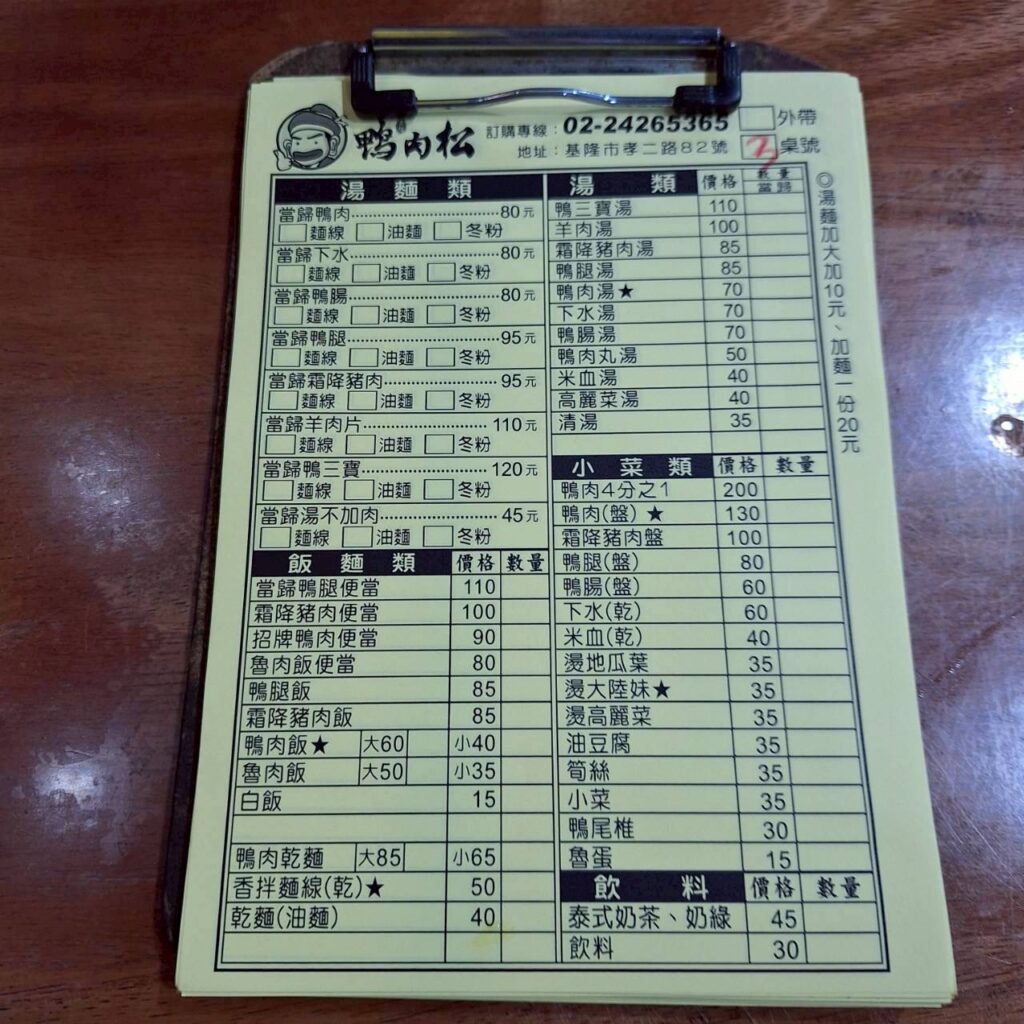 鴨肉松
訂購專線：02-24265365 外帶
地址：基隆市孝二路82號 桌號
湯麵類
當歸鴨肉 80元
麵線 油麵 冬粉
當歸下水 80元
麵線 油麵 冬粉
當歸鴨腸 80元
麵線 油麵 冬粉
當歸鴨腿 95元
麵線 油麵 冬粉
當歸霜降豬肉 95元
麵線 油麵 冬粉
當歸羊肉片 110元
麵線 油麵 冬粉
當歸鴨三寶 120元
麵線 油麵 冬粉
當歸湯不加肉 45元
麵線 油麵 冬粉
飯麵類 價格 數量
當歸鴨腿便當 110
霜降豬肉便當 100
招牌鴨肉便當 90
魯肉飯便當 80
鴨腿飯 85
霜降豬肉飯 85
鴨肉飯★ 大60 小40
魯肉飯 大50 小35
白飯 15
鴨肉乾麵 大85 小65
香拌麵線(乾)★ 50
乾麵(油麵) 40
湯類 價格 數量 當歸
鴨三寶湯 110
羊肉湯 100
霜降豬肉湯 85
鴨腿湯 85
鴨肉湯★ 70
下水湯 70
鴨腸湯 70
鴨肉丸湯 50
米血湯 40
高麗菜湯 40
清湯 35
小菜類 價格 數量
鴨肉4分之1 200
鴨肉(盤)★ 130
霜降豬肉盤 100
鴨腿(盤) 80
鴨腸(盤) 60
下水(乾) 60
米血(乾) 40
燙地瓜葉 35
燙大陸妹★ 35
燙高麗菜 35
油豆腐 35
筍絲 35
小菜 35
鴨尾椎 30
魯蛋 15
飲料 價格 數量
泰式奶茶、奶綠 45
飲料 30
◎湯麵加大加10元、加麵一份20元